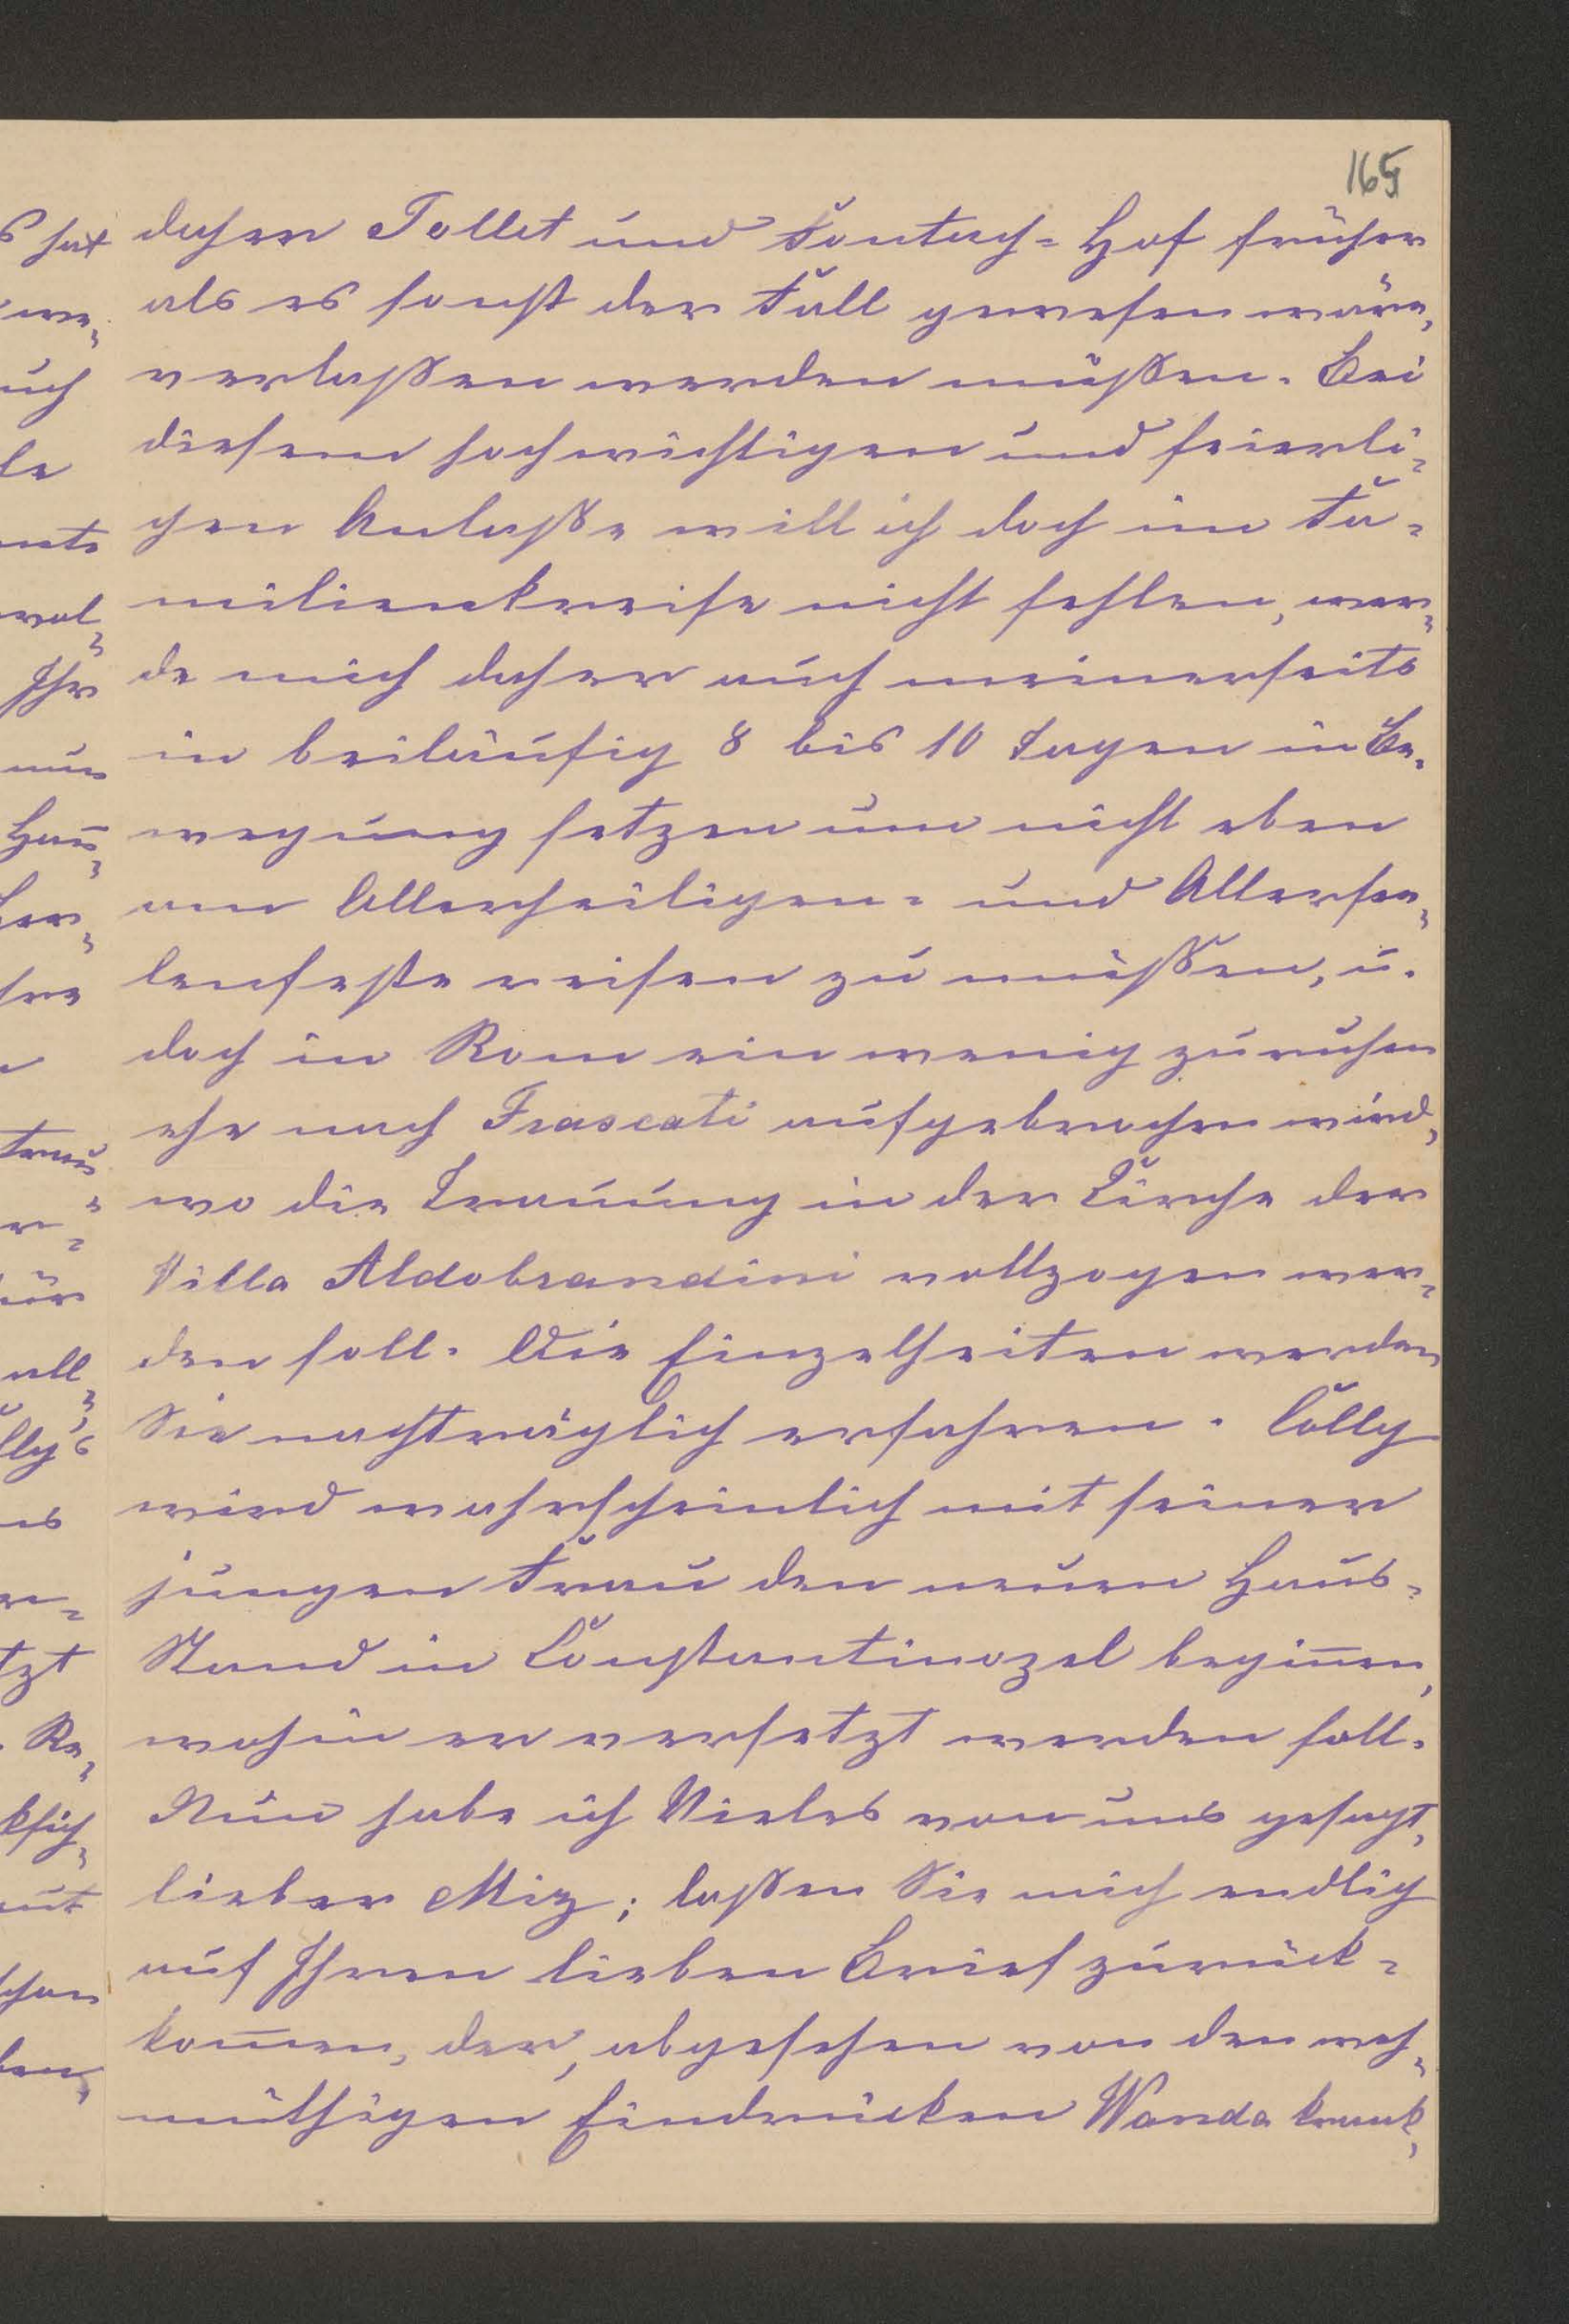 165
daher Tollet und Fontach-Hof früher
als es sonst der Fall gewesen wäre,
verlaßen werden müßen. Bei
diesem hochwichtigen und feierli-
chen Anlaße will ich doch im Fa-
milienkreise nicht fehlen, wer-
de mich daher auch meinerseits
in beiläufig 8 bis 10 Tagen in Be-
wegung setzen um nicht eben
am Allerheiligen- und Allersee-
lenfeste reisen zu müßen, u.
doch in Rom ein wenig zu ruhen
ehe nach Frascati aufgebrochen wird,
wo die Trauung in der Kirche der
Villa Aldobrandini vollzogen wer-
den soll. Die Einzelheiten werden
Sie nachträglich erfahren.
wird wahrscheinlich mit seiner
jungen Frau den neuen Haus-
Stand in Constantinopel begin̄en,
wohin er versetzt werden soll.
Nun habe ich Vieles von uns gesagt,
lieber Miz; laßen Sie mich endlich
auf Ihren lieben Brief zurück-
kom̄en, der, abgesehen von den weh-
müthigen Eindrücken Wanda krank,
s hat
uch
le
Ihr
nun
tzt